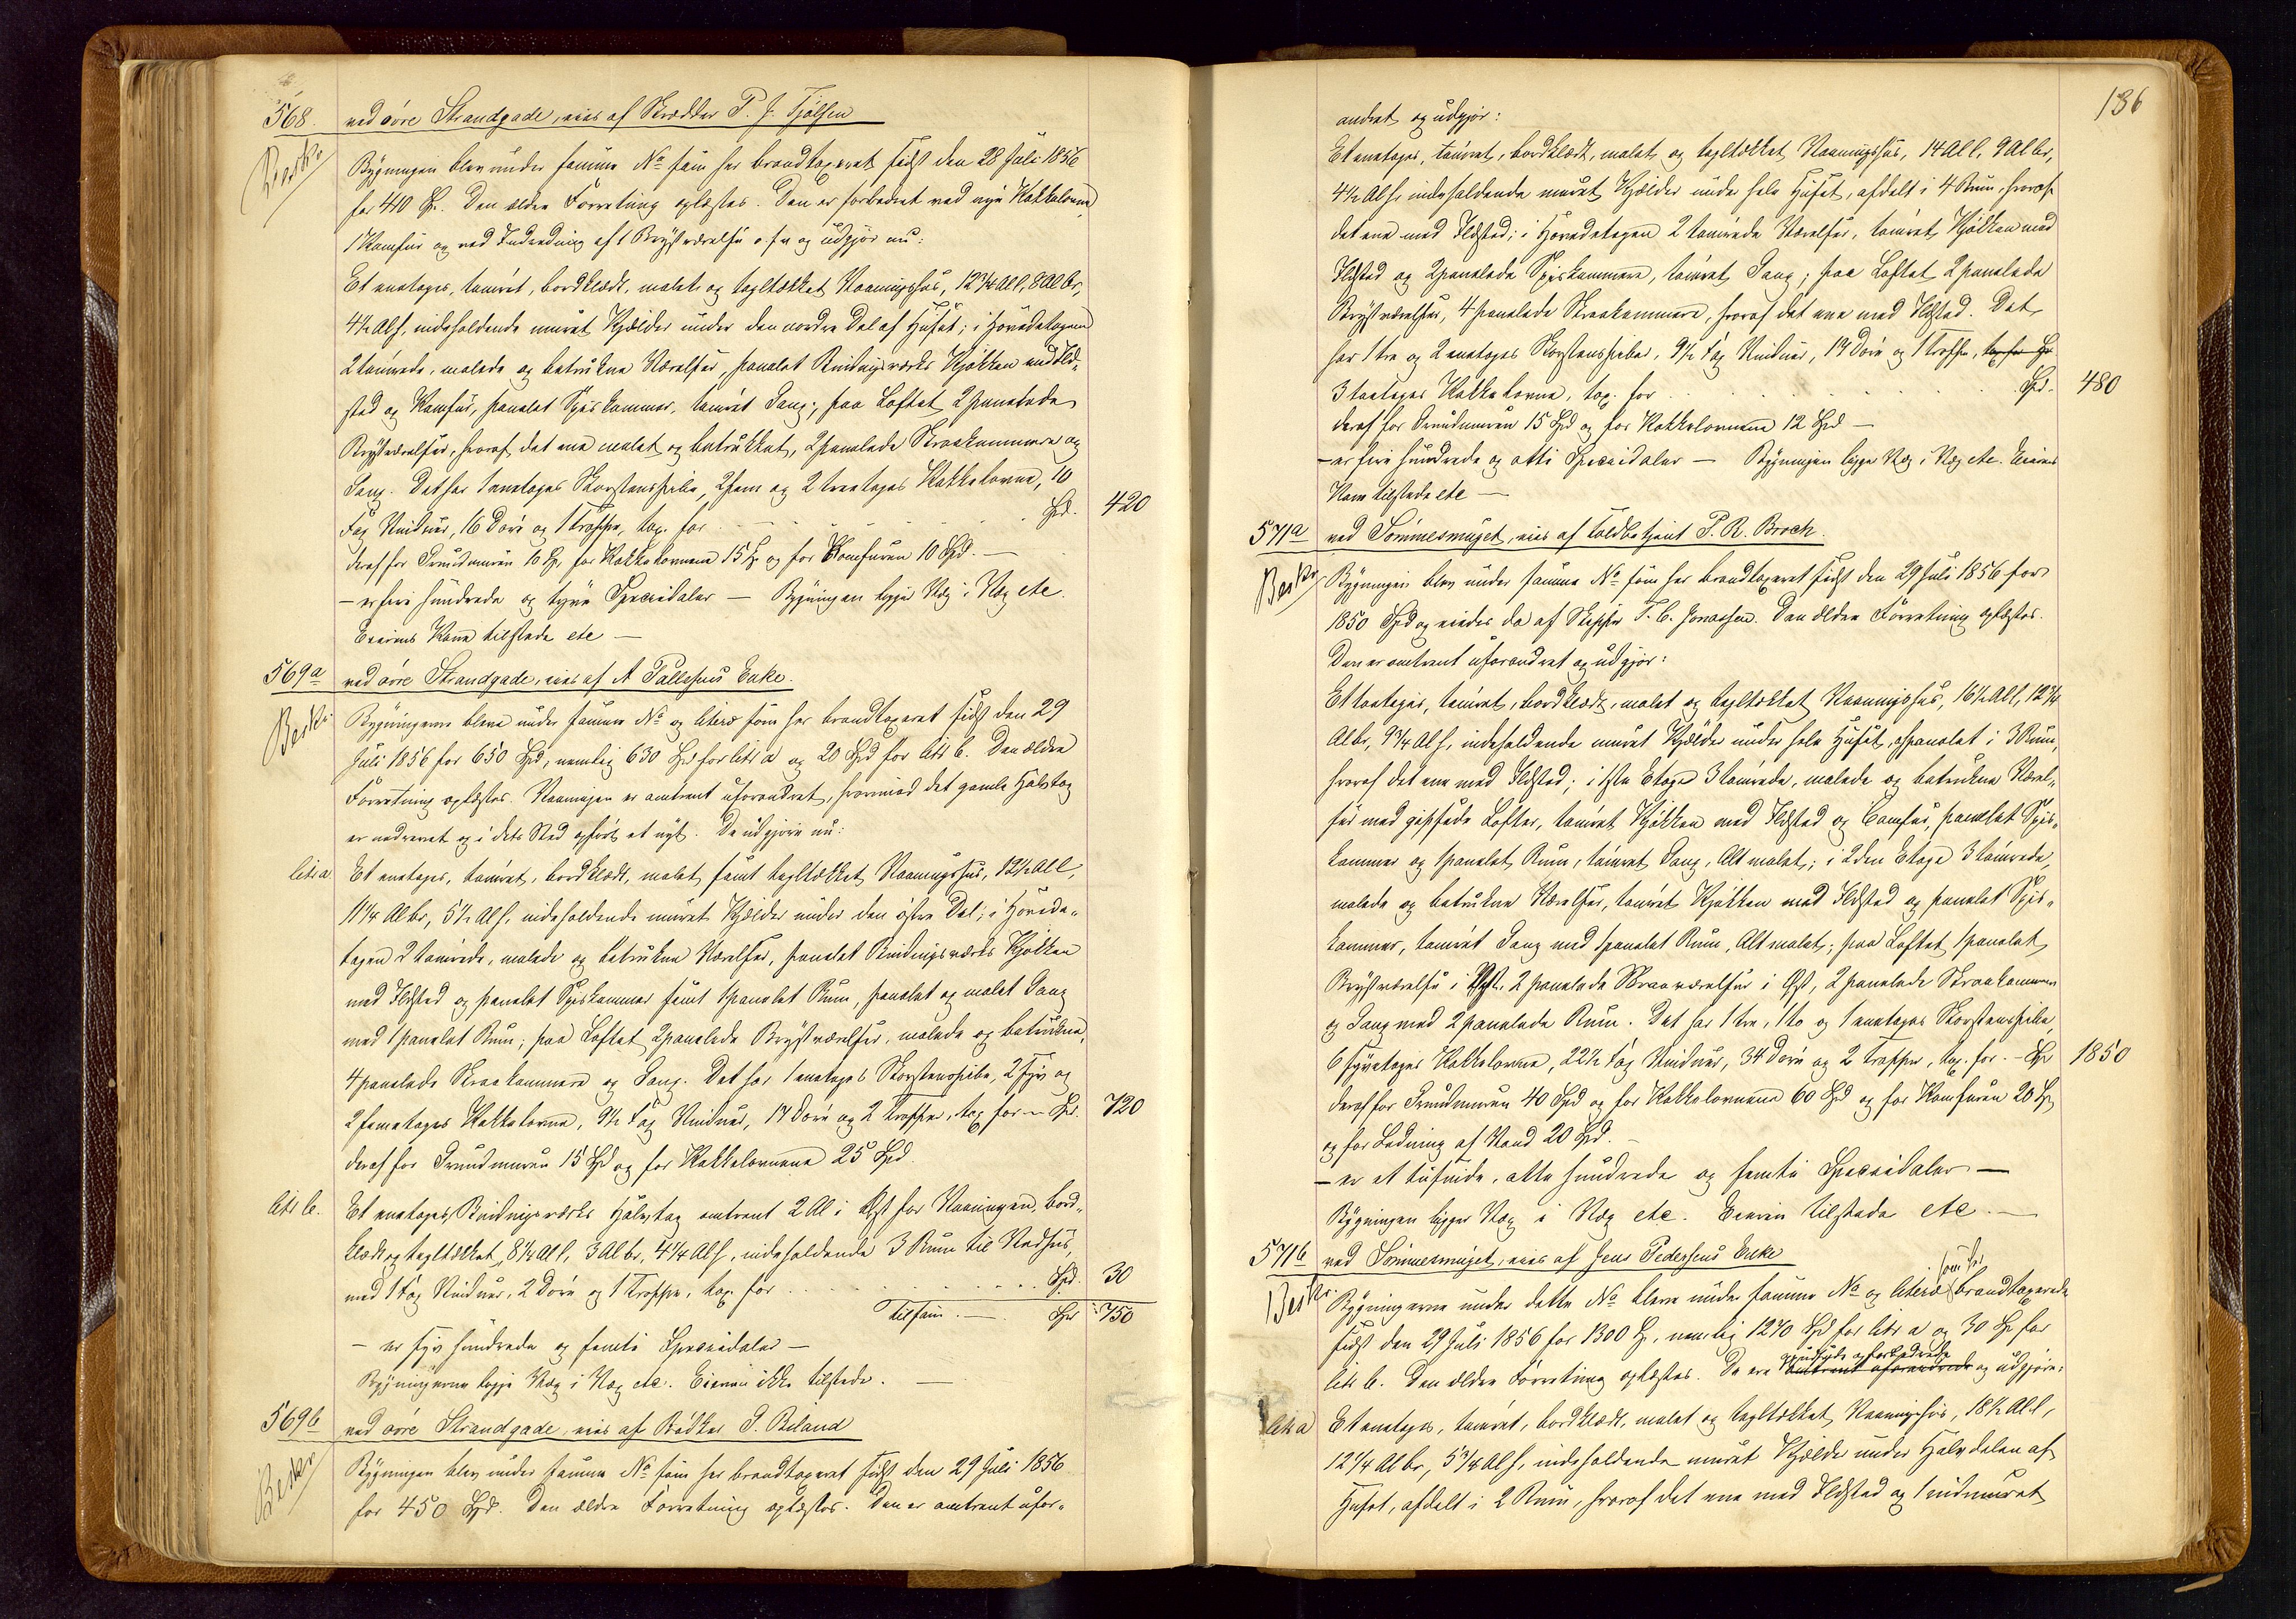 568. ved øvre Strandgade, eies af Skrædder P. J. Tjølsen
Beskr Bygningen blev under samme No som her brandtaxeret sidst den 28 Juli 1856
for 410 Sp. Den ældre Forretning oplæstes. Den er forbedret ved nye Kakkelovne,
1 Komfur og ved Indredning af 1 Brystværelse o.s.v. og udgjør nu:
Et enetages, tømret, bordklædt, malet og tagltækket Vaaningshus, 12 3/4 Al l, 8 Al br,
4 1/2 Al h, indeholdende muret Kjælder under den nordre Del af Huset; i Hovedetagen
2 tømrede, malede og betrukne Værelser, panelet Bindingsværks Kjøkken med Ild-
sted og Komfur, panelet Spiskammer, tømret Gang; paa Loftet 2 panelede
Brystværelser, hvoraf det ene malet og betrukket, 2 panelede Skraakammere og
Gang. Det har 1 enetages Skorstenspibe, 2 fem og 2 treetages Kakkelovne, 10
Fag Vinduer, 16 Døre og 1 Trappe, tax. for . . . Spd. 420
deraf for Grundmuren 10 Sp, for Kakkelovnene 15 Sp og for Komfuren 10 Spd. —
— er fire hundrede og tyve Speciedaler — Bygningen ligger Væg i Væg etc.
Eierens Kone tilstede etc —
569a ved øvre Strandgade, eies af A Pallesens Enke.
Beskr. Bygningerne bleve under samme No og litera som her brandtaxeret sidst den 29
Juli 1856 for 650 Spd, nemlig 630 Spd for litr a og 20 Spd for litr b. Den ældre
Forretning oplæstes. Vaaningen er omtrent uforandret, hvorimod det gamle Halvtag
er nedrevet og i dets Sted opført et nyt. De udgjøre nu:
litr a Et enetages, tømret, bordklædt, malet samt tagltækket Vaaningshus, 12 1/2 Al l,
11 1/4 Al br, 5 1/2 Al h, indeholdende muret Kjælder under den østre Del; i Hovede-
tagen 2 tømrede, malede og betrukne Værelser, panelet Bindingsværks Kjøkken
med Ildsted og panelet Spiskammer samt 1 panelet Rum, panelet og malet Gang
med 1 panelet Rum; paa Loftet 2 panelede Brystværelser, malede og betrukne,
4 panelede Skraakammere og Gang. Det har 1 enetages Skorstenspibe, 2 syv og
2 femetages Kakkelovne, 9 1/2 Fag Vinduer, 17 Døre og 2 Trapper, tax for — Spd. 720
deraf for Grundmuren 15 Spd og for Kakkelovnene 25 Spd.
litr b. Et enetages Bindingsværks Halvtag omtrent 2 Al i Øst for Vaaningen, bord-
klædt og tagltækket, 8 1/4 Al l, 3 Al br, 4 1/4 Al h, indeholdende 3 Rum til Vedhus,
med 1 Fag Vinduer, 2 Døre og 1 Trappe, tax. for . . . Spd. 30
Tilsam. —. Spd 750
— er syv hundrede og femti Speciedaler —
Bygningerne ligge Væg i Væg etc. Eieren ikke tilstede. —
569b ved øvre Strandgade, eies af Bødker P. Beland
Beskr Bygningen blev under samme No som her brandtaxeret sidst den 29 Juli 1856
for 450 Spd. Den ældre Forretning oplæstes. Den er omtrent ufor-
186
andret og udgjør:
Et enetages, tømret, bordklædt, malet og tagltækket Vaaningshus, 14 Al l, 9 Al br,
4 1/2 Al h, indeholdende muret Kjælder under hele Huset, afdelt i 4 Rum, hvoraf
det ene med Ildsted; i Hovedetagen 2 tømrede Værelser, tømret Kjøkken med
Ildsted og 2 panelede Spiskammere, tømret Gang; paa Loftet 2 panelede
Brystværelser, 4 panelede Skraakammere, hvoraf det ene med Ildsted. Det
har 1 tre og 2 enetages Skorstenspiber, 9 1/2 Fag Vinduer, 17 Døre og 1 Trappe, tax for Sp
3 toetages Kakkelovne, tax. for . . . Spd. 480
deraf for Grundmuren 15 Spd og for Kakkelovnene 12 Spd —
— er fire hundrede og otti Speciedaler — Bygningen ligger Væg i Væg etc. Eierens
Kone tilstede etc —
571a ved Tømmersmuget, eies af Toldbetjent P. R. Broch.
Beskr Bygningen blev under samme No som her brandtaxeret sidst den 29 Juli 1856 for
1850 Spd og eiedes da af Skipper T. C. Jonassen. Den ældre Forretning oplæstes.
Den er omtrent uforandret og udgjør:
Et toetages, tømret, bordklædt, malet og tagltækket Vaaningshus, 16 1/2 Al l, 12 3/4
Al br, 9 3/4 Al h, indeholdende muret Kjælder under hele Huset, afpanelet i 3 Rum,
hvoraf det ene med Ildsted; i 1ste Etage 3 tømrede, malede og betrukne Værel-
ser med gipsede Lofter, tømret Kjøkken med Ildsted og Comfur, panelet Spis-
kammer og 1 panelet Rum, tømret Gang, Alt malet; i 2den Etage 3 tømrede,
malede og betrukne Værelser, tømret Kjøkken med Ildsted og panelet Spis-
kammer, tømret Gang med 1 panelet Rum, Alt malet; paa Loftet 1 panelet
Brystværelse i Vest, 2 panelede Skraaværelser i Øst, 2 panelede Skraakammere
og Gang med 2 panelede Rum. Det har 1 tre, 1 to og 1 enetages Skorstenspibe,
6 syvetages Kakkelovne, 22 1/2 Fag Vinduer, 34 Døre og 2 Trapper, tax. for. — Spd 1850
deraf for Grundmuren 40 Spd og for Kakkelovnene 60 Spd og for Komfuren 20 Sp
og for Ledning af Vand 20 Spd. —
— er et tusinde, otte hundrede og femti Speciedaler —
Bygningen ligger Væg i Væg etc. Eieren tilstede etc. —
571b ved Tømmersmuget, eies af Jens Pedersens Enke
Beskr. Bygningerne under dette No bleve under samme No og litera som her brandtaxerede
sidst den 29 Juli 1856 for 1300 Sp, nemlig 1270 Spd for litr a og 30 Sp for
litr b. Den ældre Forretning oplæstes. De ere omtrent uforandrede og udgjøre:
litr a Et enetages, tømret, bordklædt, malet og tagltækket Vaaningshus, 18 1/2 Al l,
12 1/4 Al br, 5 3/4 Al h, indeholdende muret Kjælder under Halvdelen af
Huset, afdelt i 2 Rum, hvoraf det ene med Ildsted og 1 indmuret